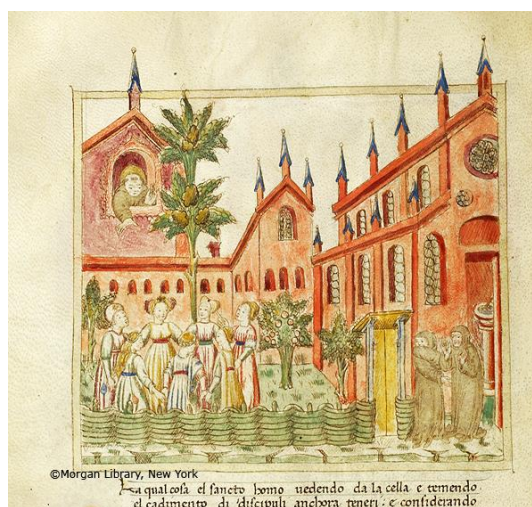 ©Morgan Library, New York
La qual cosa el sancto homo uedendo da la cella e temendo
el cadimento di discipuli anchora teneri: e considerando